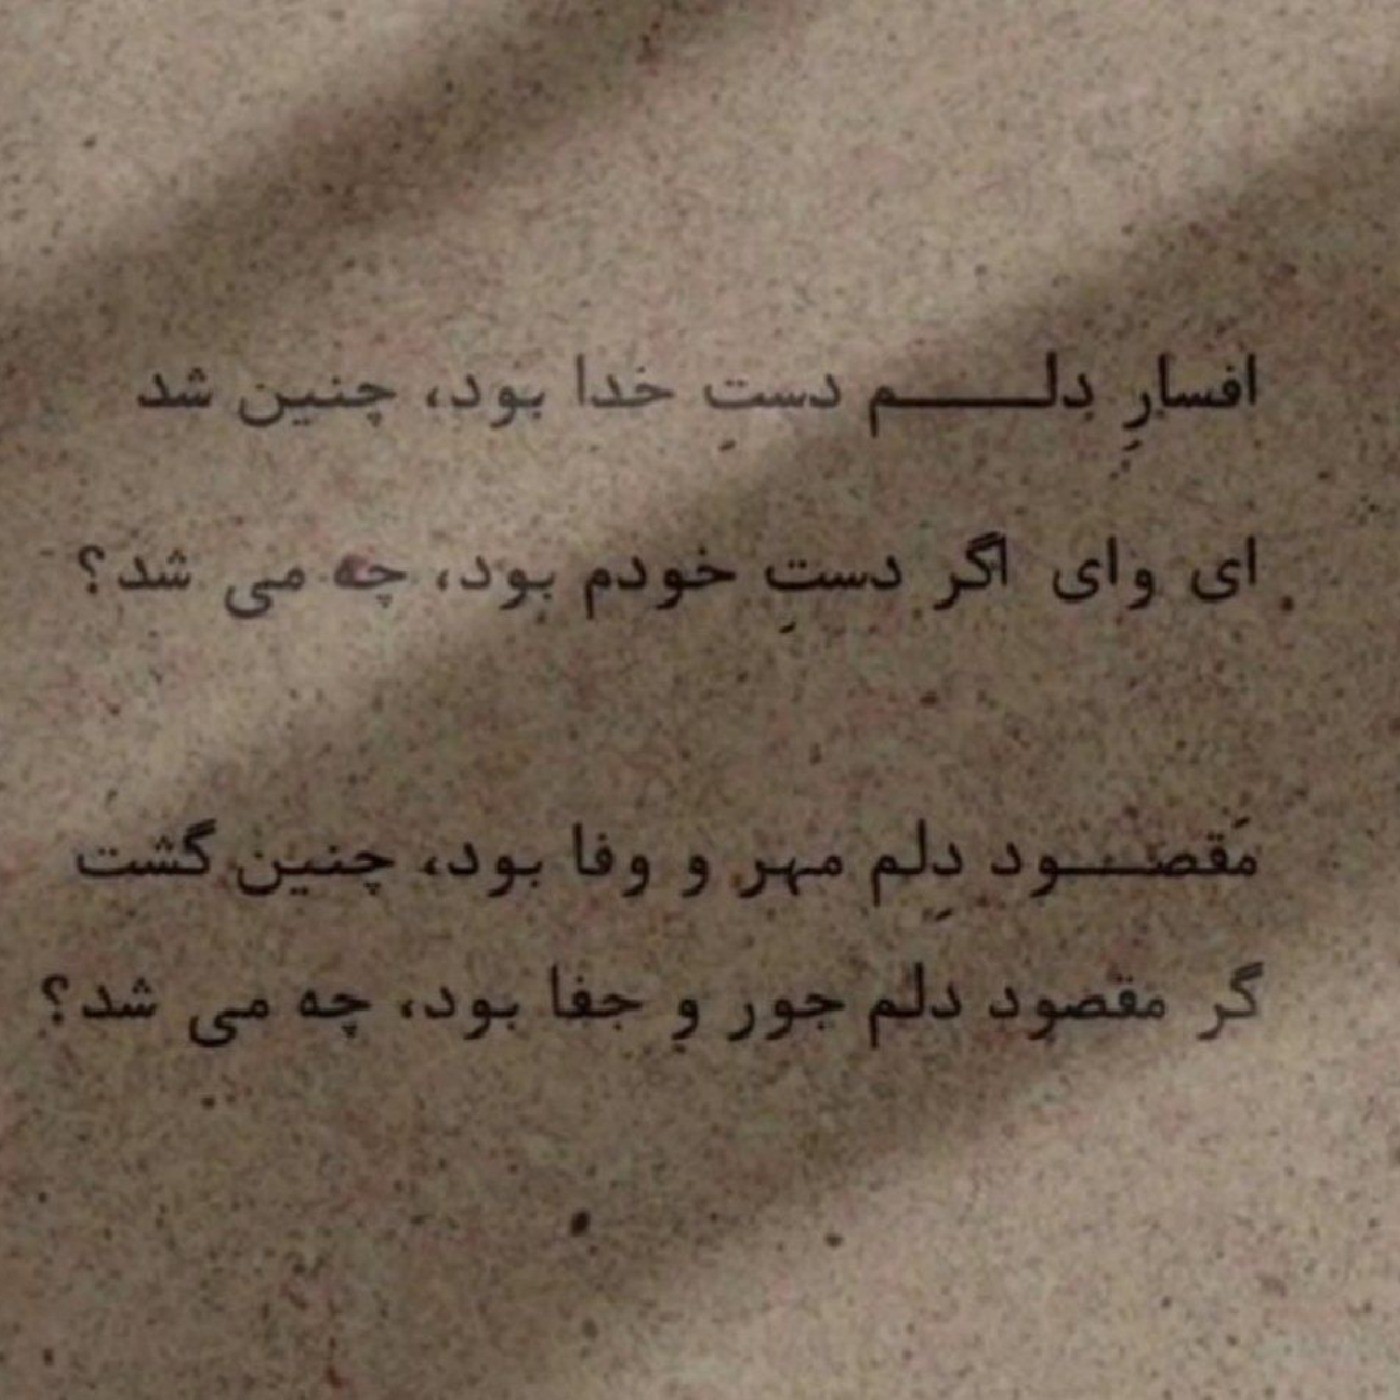 افسارِ دلـــــم دستِ خدا بود، چنین شد
ای وای اگر دستِ خودم بود، چه می شد؟
مَقصـــود دِلم مهر و وفا بود، چنین گشت
گر مقصود دلم جور و جفا بود، چه می شد؟